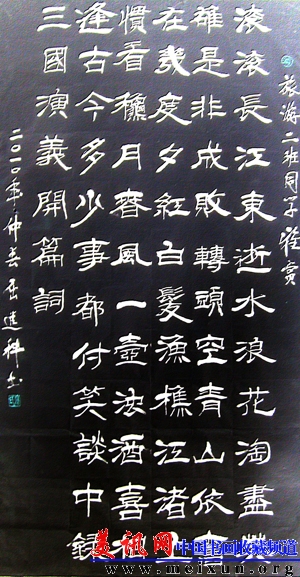 旅游二班同学雅賞
滚滚長江東逝水浪花淘盡
雄是非成敗轉頭空青山依
在幾度夕紅白髮漁樵江渚上
慣看龝月春風一壺浊酒喜相
逢古今多少事都付笑談中録
三國演義開篇詞
二〇一〇年仲春岳進科书
美讯网
中国书画收藏频道